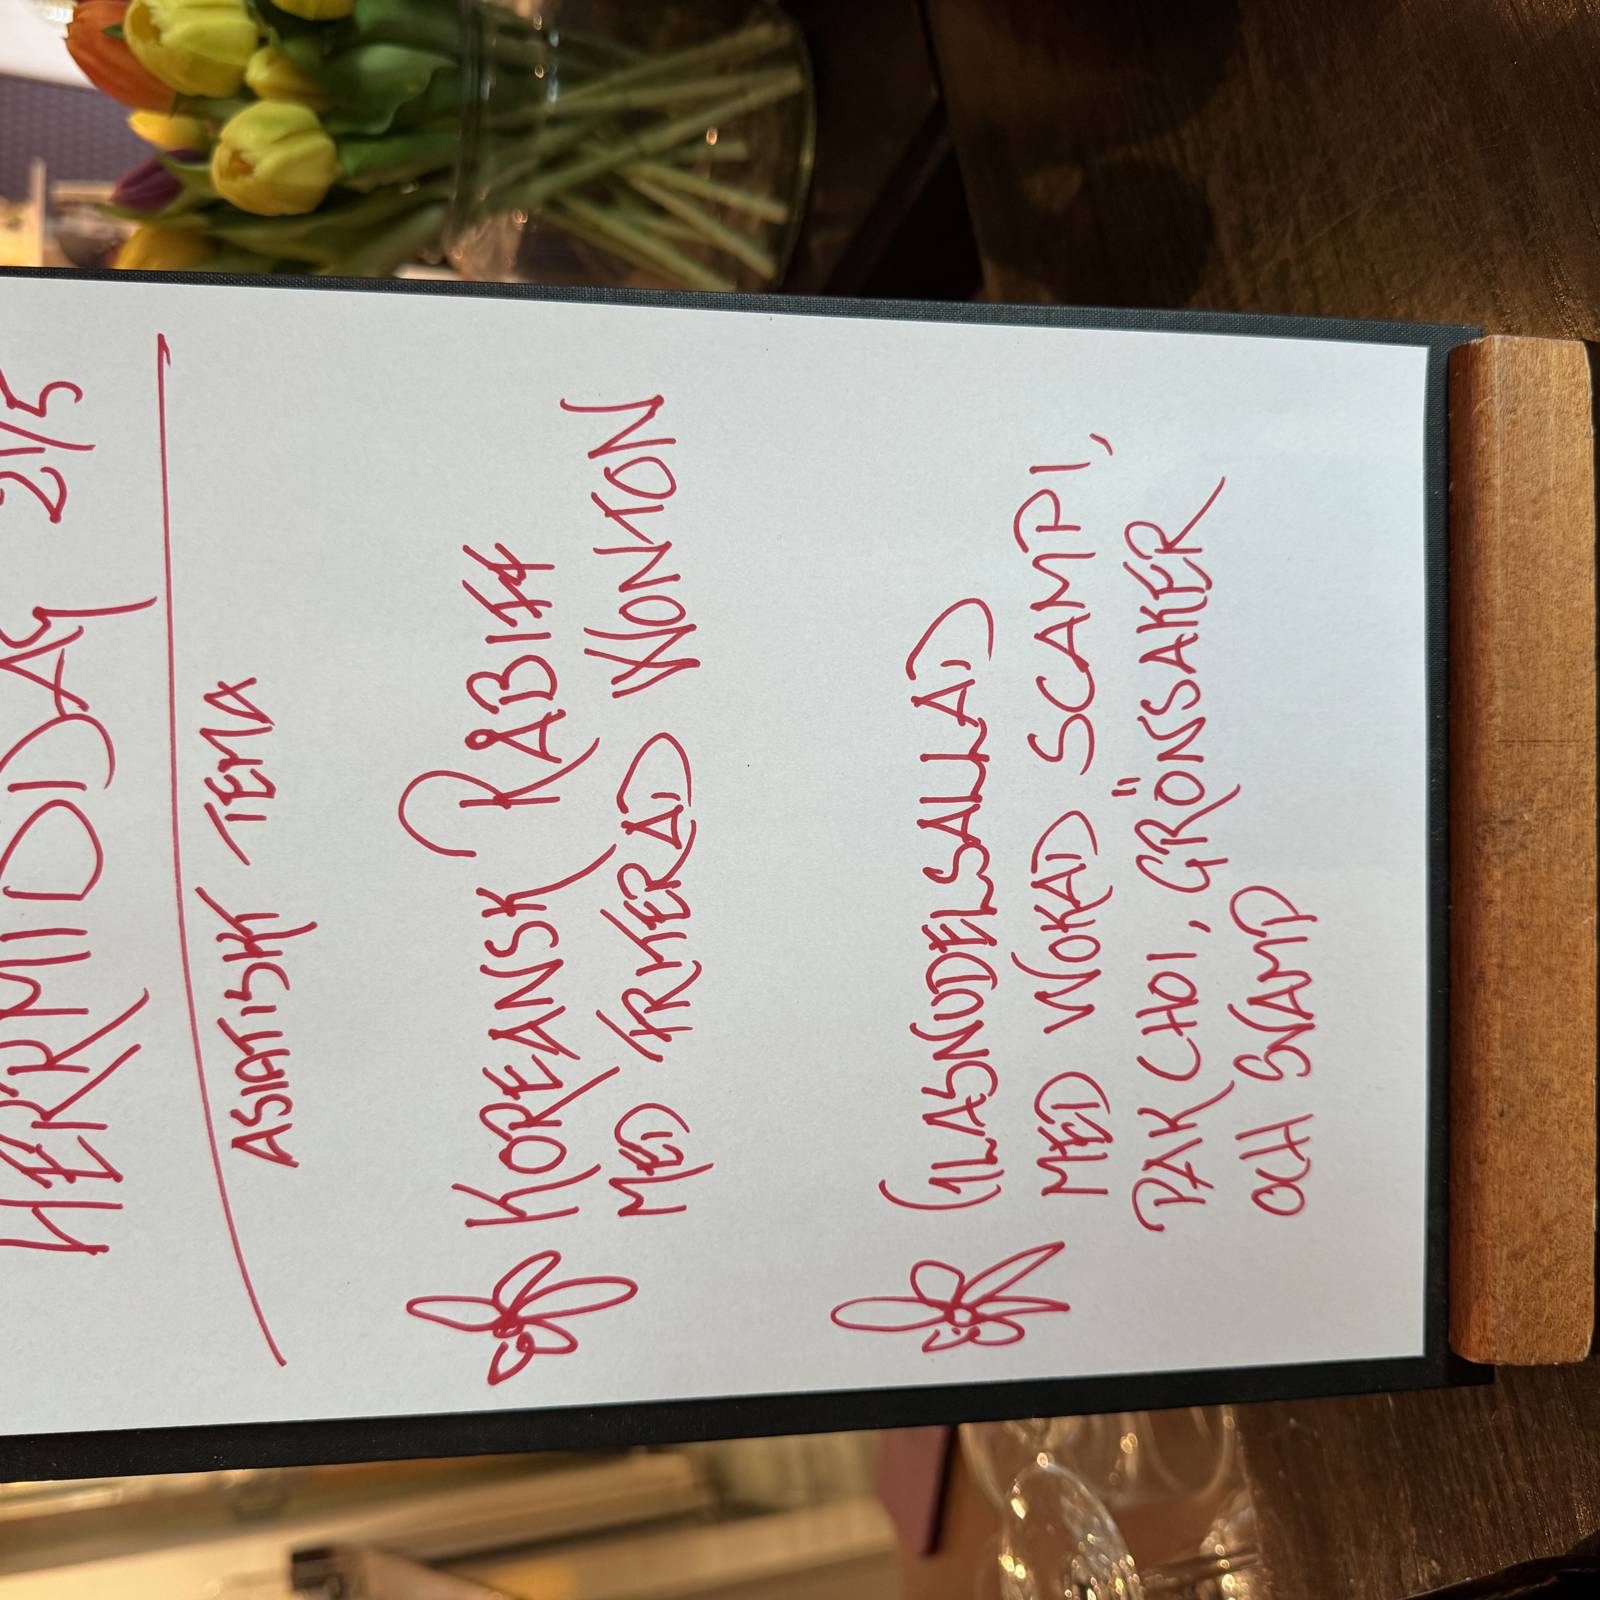 HERRMIDDAG 21/5
ASIATISKT TEMA
KOREANSK RÅBIFF
MED FRITERAD WONTON
GLASNUDELSALLAD
MED WOKAD SCAMPI,
PAK CHOI, GRÖNSAKER
OCH SVAMP